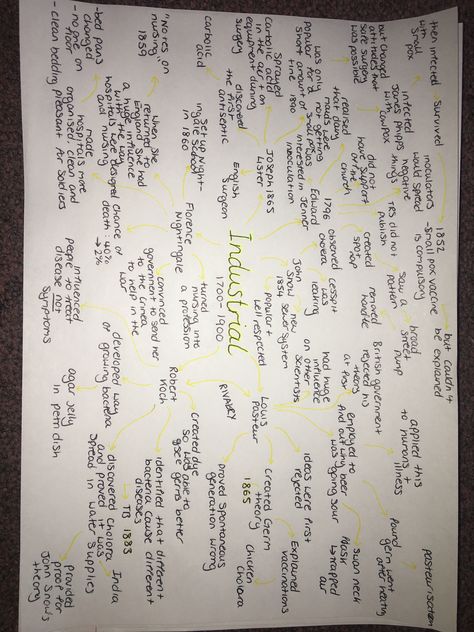 Industrial
1700-1900
Florence
Nightingale
turned
nursing into
a profession
convinced
government to send her
to the crimea
to help in the
war
influenced
people to treat
disease not
symptoms
chance of
death: 40%
→ 2%
when she
returned to
England she had
a huge influence
within the way
hospitals were designed
and nursing
made
hospitals more
organised, clean and
pleasant for soldiers
- bed pans
changed
- no one on
floor
- clean bedding
"Notes on
nursing"
1859
Set up Night-
ingale School
in 1860
English
Surgeon
Joseph 1865
Lister
discovered
the first
antiseptic
carbolic
acid
Sprayed
carbolic acid
in the air + on
equipment during
surgery
was only
popular for a
short amount of
time 1890
but changed
attitudes that
safe surgery
was possible
Edward
Jenner
1796
inoculation
not getting
interested in
realised
milk maids were
did not
have support
of the
church
infected
James Phipps
with cowpox
then infected
with small
pox
Survived
inoculators
would spread
negative
things
RS did not
publish
1852
Small pox vaccine
is compulsory
but couldn't
be explained
John
Snow
1854
observed
cholera
created
spot map
Saw a
pattern
broad
street
pump
removed
handle
cesspit
was
leaking
new
sewer system
British government
rejected his
theory
at first
Louis
Pasteur
popular +
well respected
had huge
influence
on other
scientists
employed to
find out why beer
was going sour
applied this
to humans +
illness
pasteurisation
found
germ went
after heating
swan neck
flask
↳ trapped
air
ideas were first
rejected
created Germ
theory
1865
Explained
vaccinations
chicken
cholera
proved spontaneous
generation wrong
RIVALRY
Robert
Koch
created dye
so was able to
see germs better
identified that different
bacteria cause different
diseases
→ TB 1883
developed way
of growing bacteria
agar jelly
in petri dish
discovered Cholora
and proved it was
spread in water supplies
India
Provided
proof for
John Snow's
theory